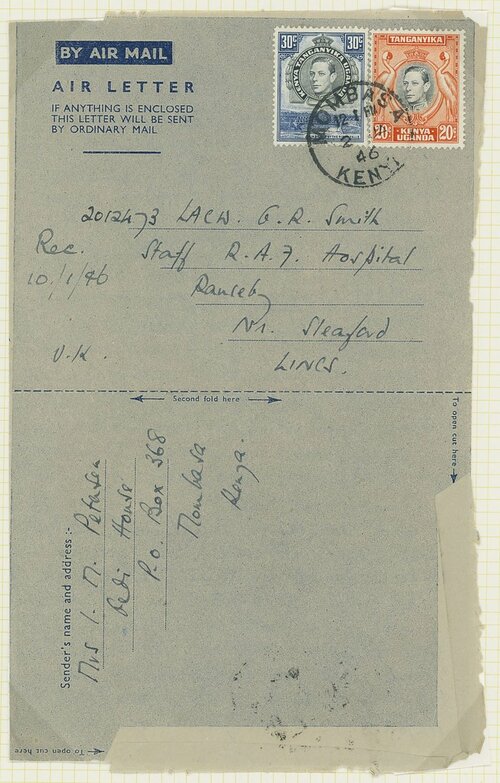 BY AIR MAIL
AIR LETTER
IF ANYTHING IS ENCLOSED
THIS LETTER WILL BE SENT
BY ORDINARY MAIL
30c 30c
KENYA TANGANYIKA UGANDA
TANGANYIKA
20c KENYA- UGANDA 20c
MOMBASA
2
46
KENYA
2012473 LACW. G. R. Smith
Staff R.A.F. Hospital
Rauceby
Nr. Sleaford
LINCS.
Rec.
10/1/46
U.K.
Second fold here
To open cut here
Sender's name and address :-
Mrs I. M. Petersen
House
P.O. Box 368
Mombasa
Kenya.
To open cut here